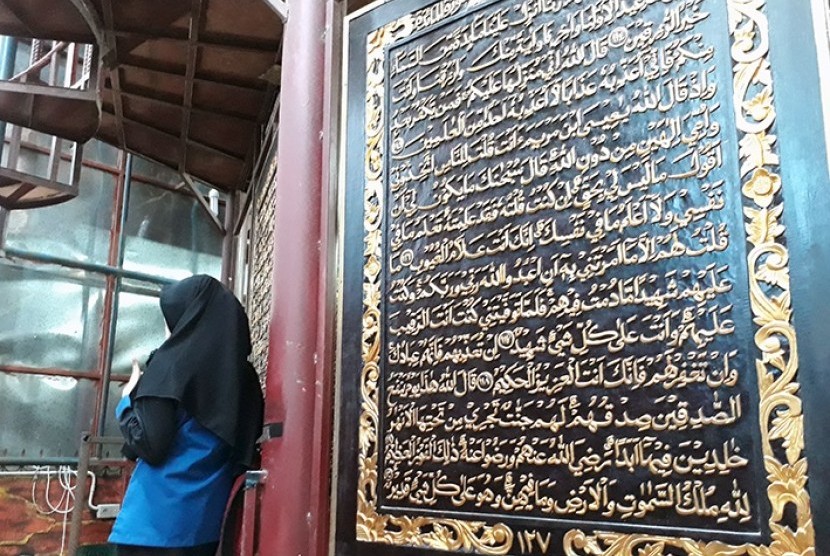 علينا مائدة من السماء
عيدا لأولنا وءاخرنا وءاية منك وارزقنا وأنت
خير الرزقين ١١٤ قال الله إني منزلها عليكم فمن يكفر بعد
منكم فإني أعذبه عذابا لا أعذبه أحدا من العلمين ١١٥
وإذ قال الله يعيسى ابن مريم ءأنت قلت للناس اتخذوني
وأمي إلهين من دون الله قال سبحنك ما يكون لي أن
أقول ما ليس لي بحق إن كنت قلته فقد علمته تعلم ما في
نفسي ولا أعلم ما في نفسك إنك أنت علم الغيوب ١١٦ ما
قلت لهم إلا ما أمرتني به أن اعبدوا الله ربي وربكم وكنت
عليهم شهيدا ما دمت فيهم فلما توفيتني كنت أنت الرقيب
عليهم وأنت على كل شيء شهيد ١١٧ إن تعذبهم فإنهم عبادك
وإن تغفر لهم فإنك أنت العزيز الحكيم ١١٨ قال الله هذا يوم ينفع
الصدقين صدقهم لهم جنت تجري من تحتها الأنهر
خلدين فيها أبدا رضي الله عنهم ورضوا عنه ذلك الفوز العظيم ١١٩
لله ملك السموت والأرض وما فيهن وهو على كل شيء قدير
١٢٧